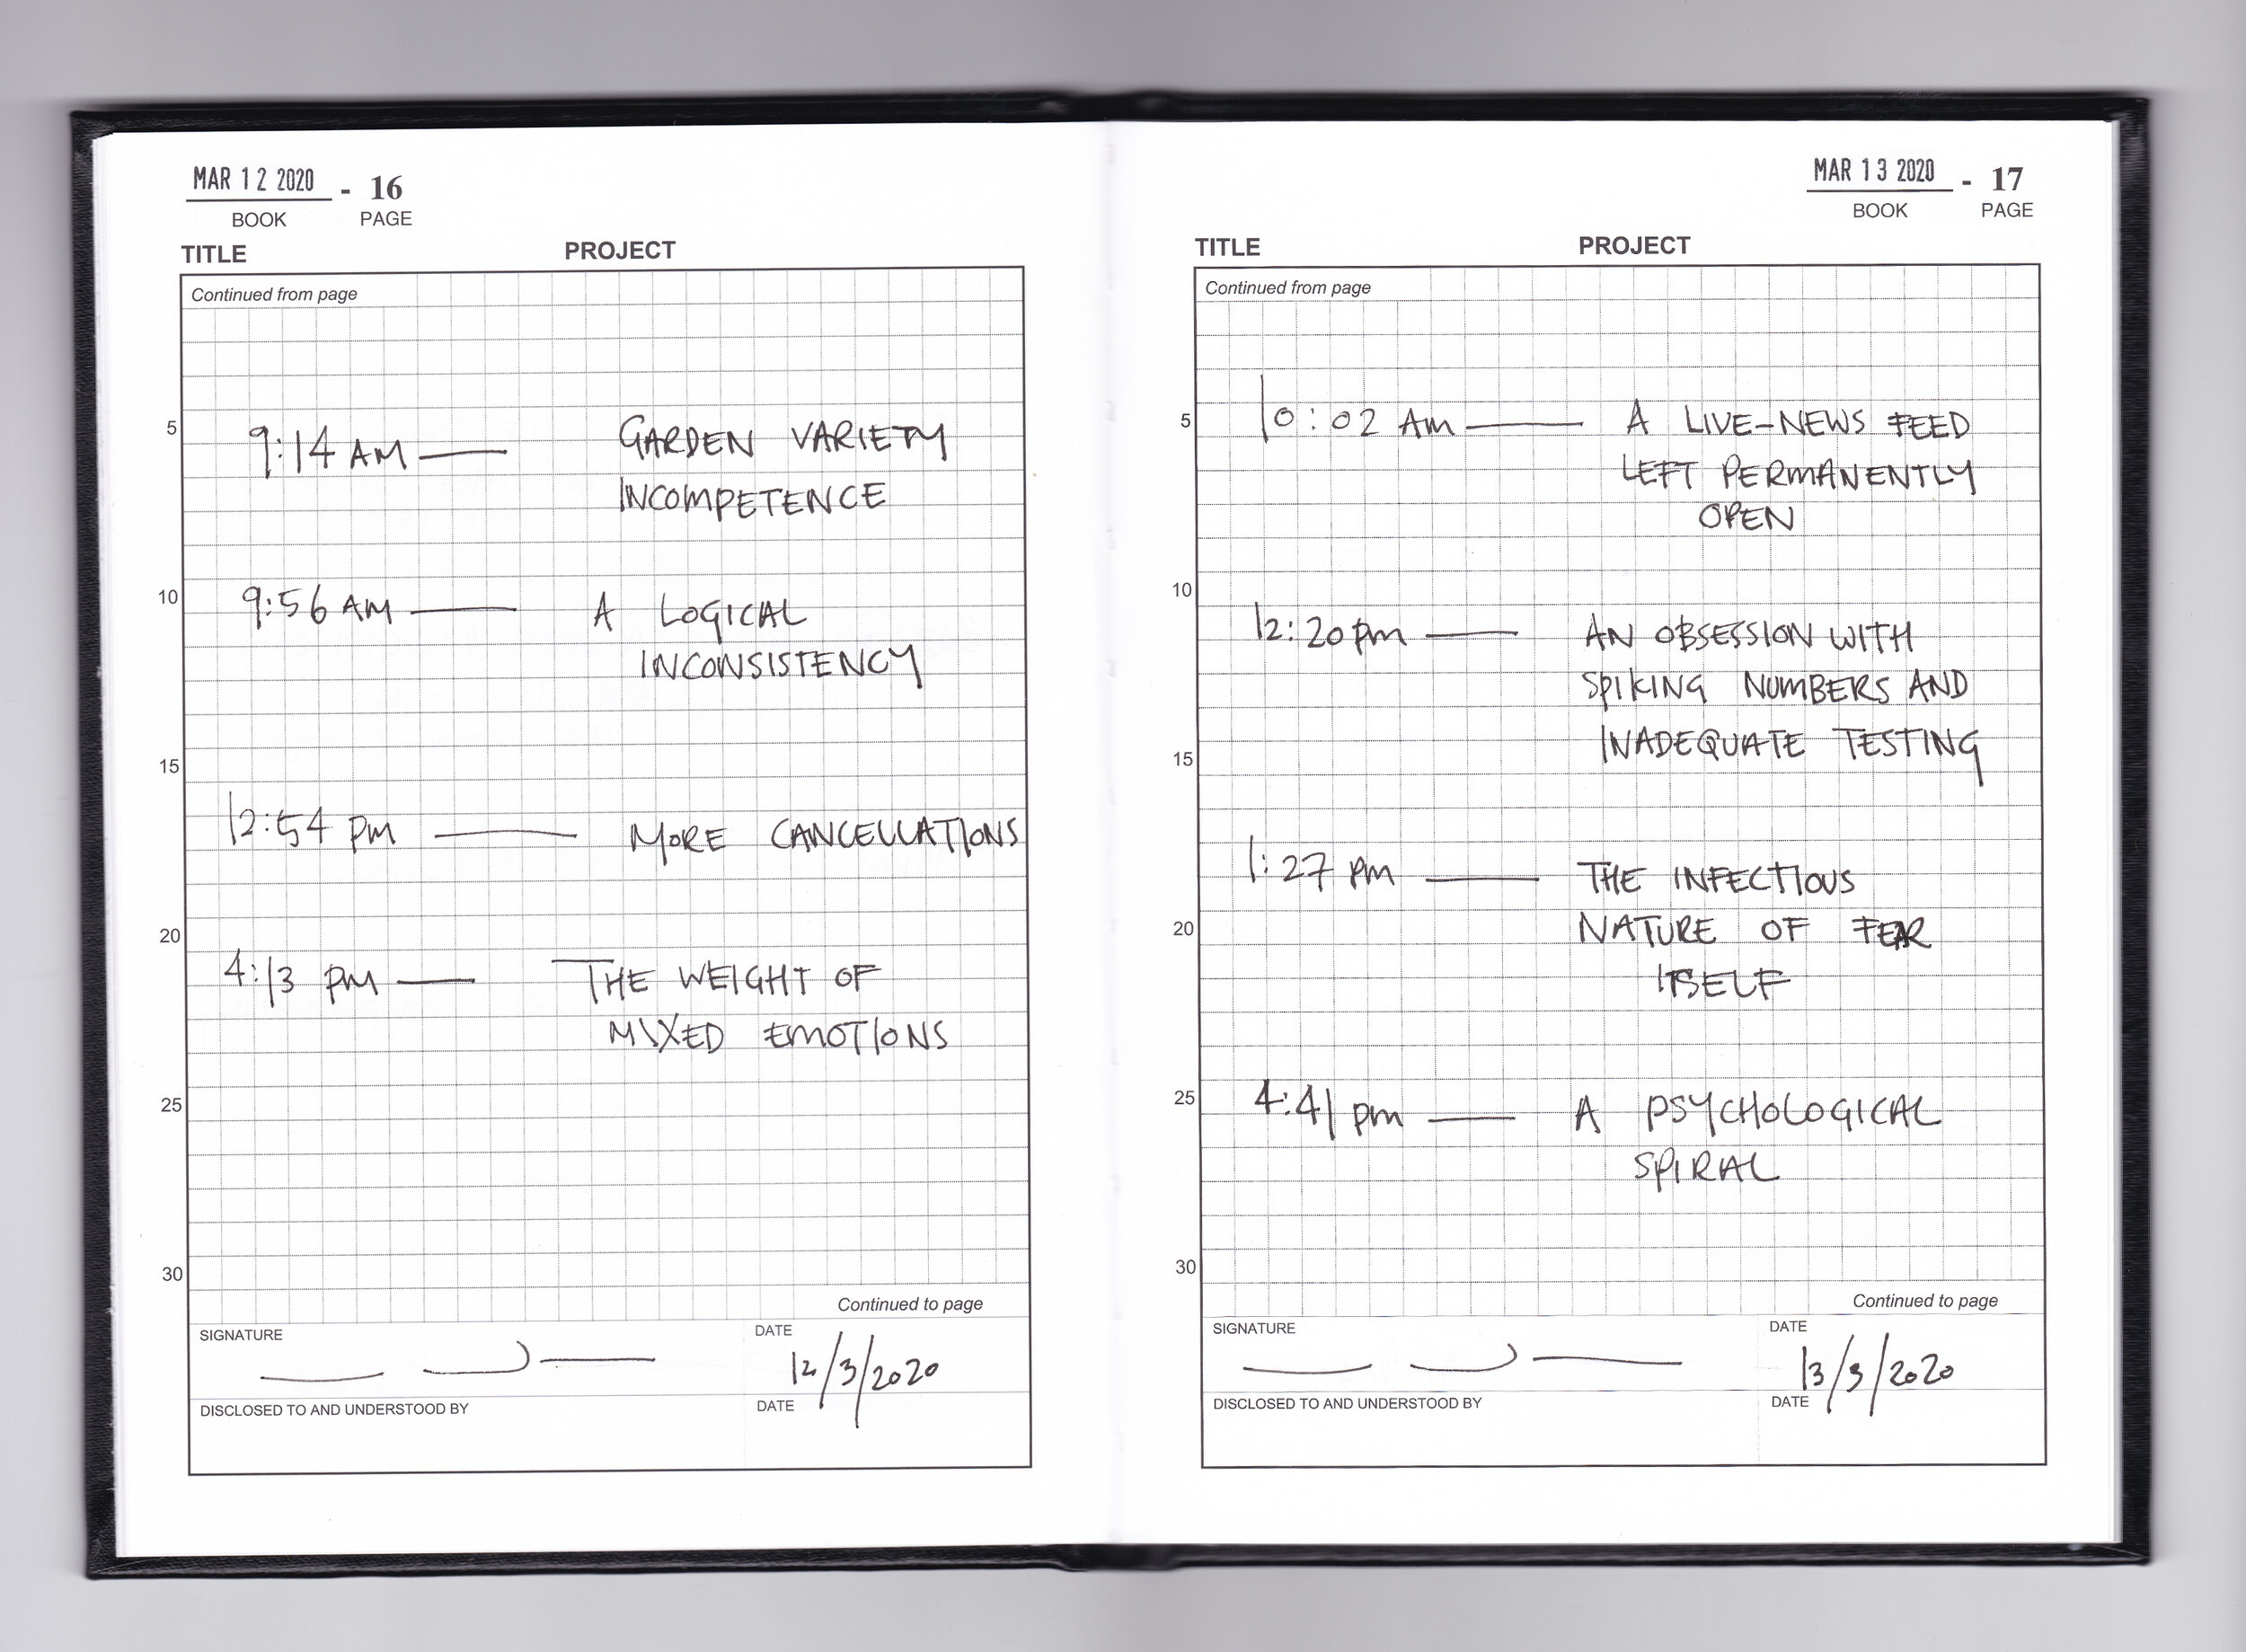 MAR 12 2020 - 16
BOOK PAGE
TITLE PROJECT
Continued from page
5
9:14 AM — GARDEN VARIETY
INCOMPETENCE
10
9:56 AM — A LOGICAL
INCONSISTENCY
15
12:54 PM — MORE CANCELLATIONS
20
4:13 PM — THE WEIGHT OF
MIXED EMOTIONS
25
30
Continued to page
SIGNATURE DATE
12/3/2020
DISCLOSED TO AND UNDERSTOOD BY DATE
MAR 13 2020 - 17
BOOK PAGE
TITLE PROJECT
Continued from page
5
10:02 AM — A LIVE-NEWS FEED
LEFT PERMANENTLY
OPEN
10
12:20 PM — AN OBSESSION WITH
SPIKING NUMBERS AND
INADEQUATE TESTING
15
1:27 PM — THE INFECTIOUS
NATURE OF FEAR
ITSELF
20
25
4:41 PM — A PSYCHOLOGICAL
SPIRAL
30
Continued to page
SIGNATURE DATE
13/3/2020
DISCLOSED TO AND UNDERSTOOD BY DATE